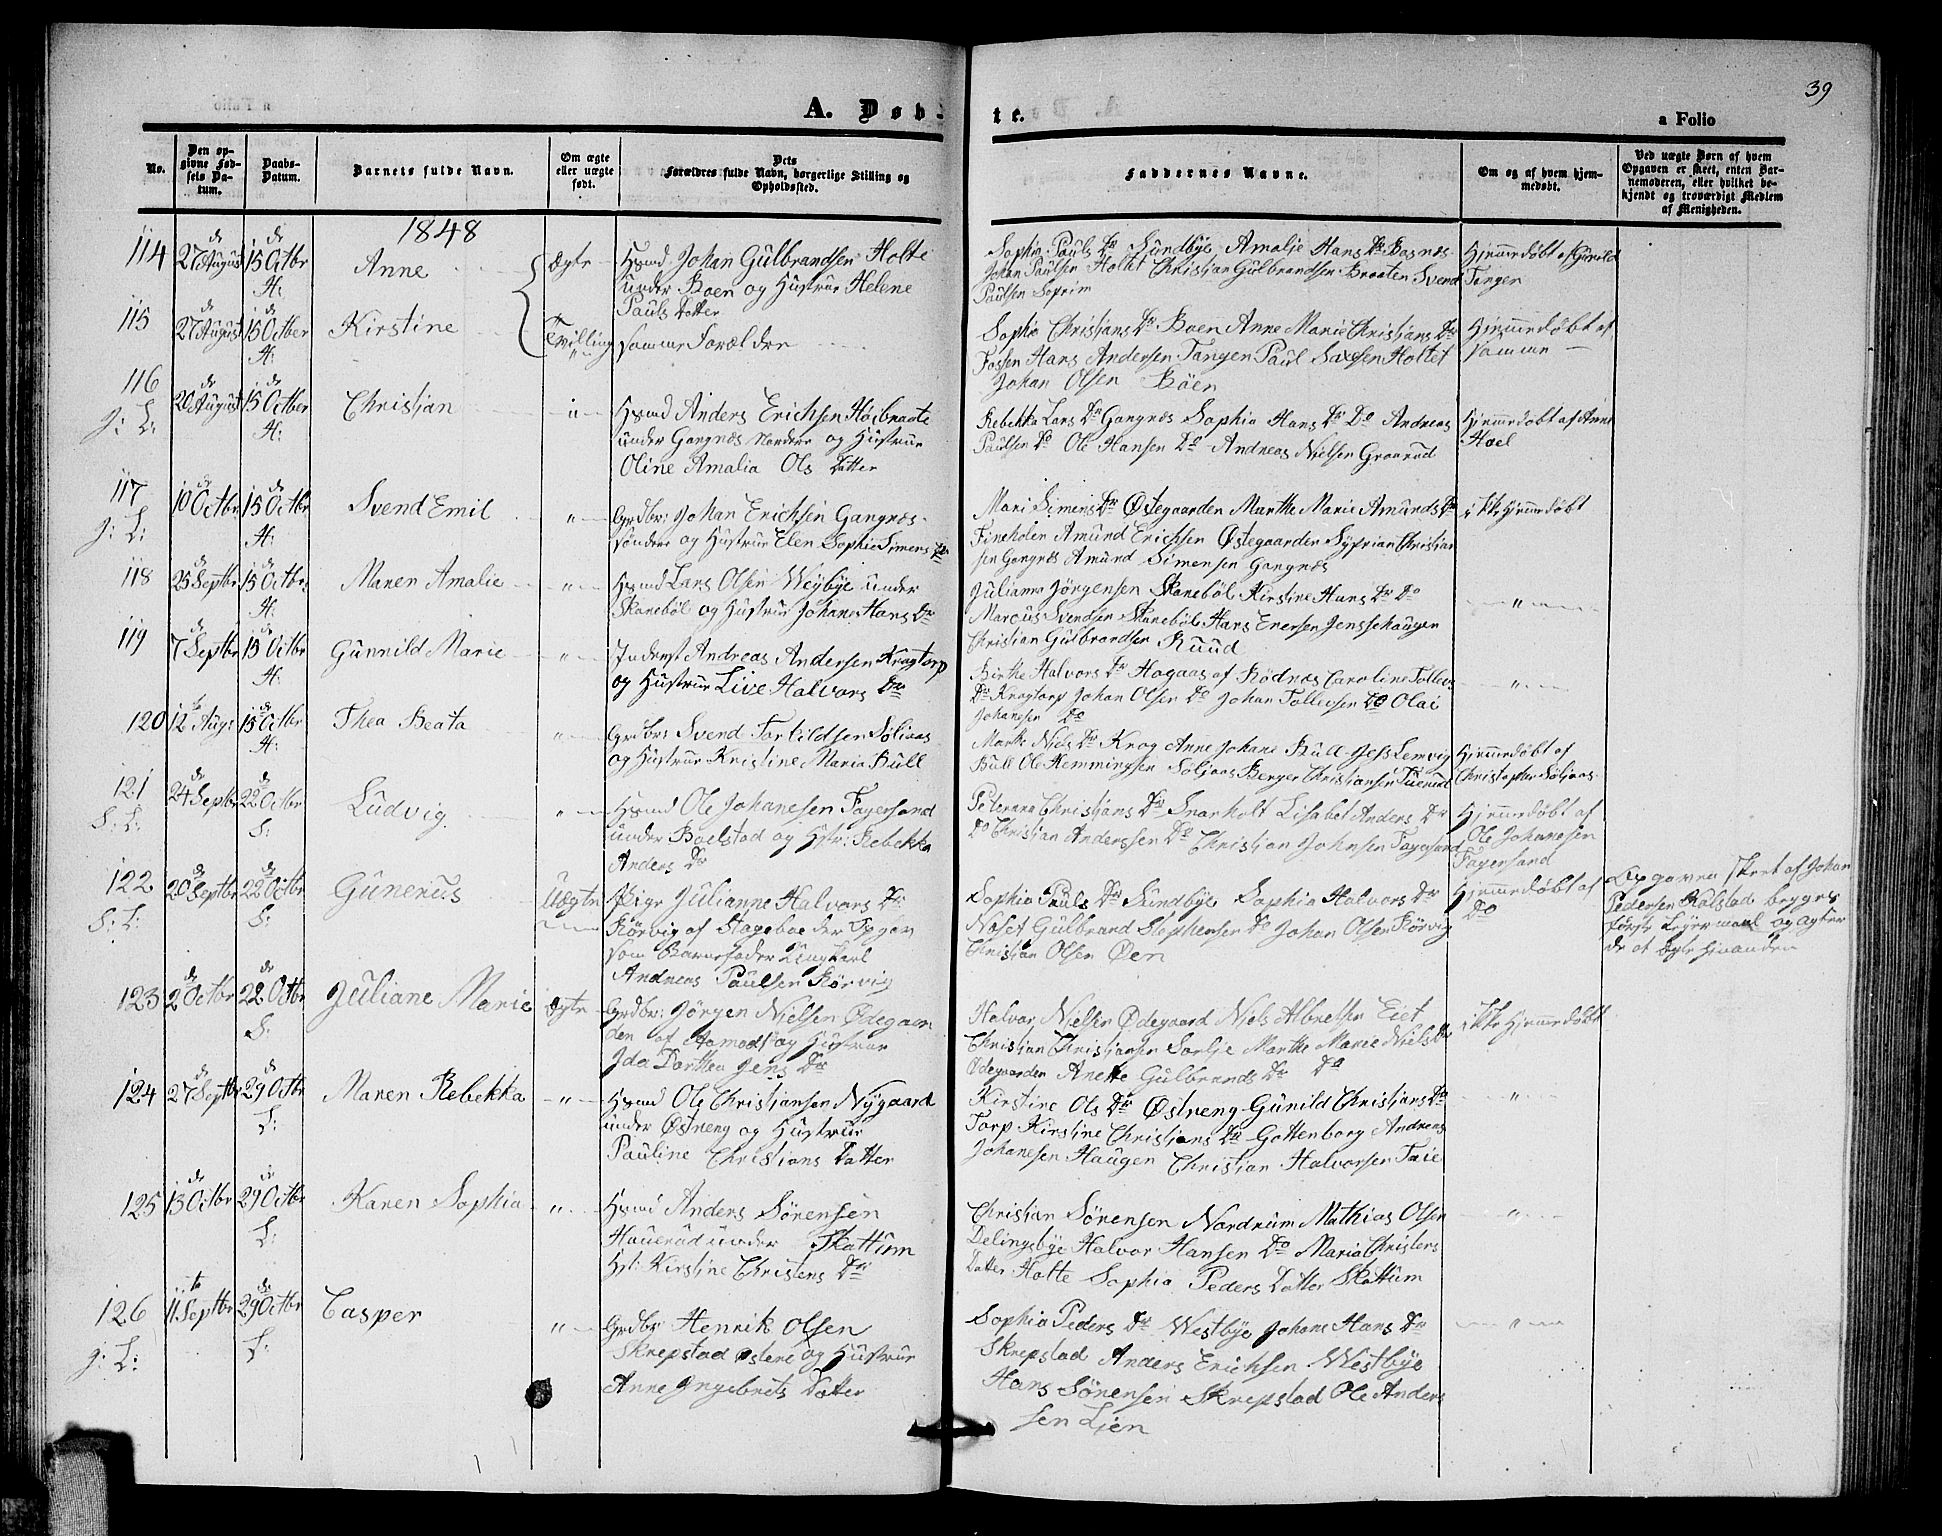 39
A. Døb-
te.
a Folio
No.
Den op-
givne Fød-
sels Da-
tum.
Daabs-
Datum.
Barnets fulde Navn.
Om ægte
eller uægte
født.
Dets
Forældres fulde Navn, borgerlige Stilling og
Opholdssted.
Faddernes Navne.
Om og af hvem hjem-
medøbt.
Ved uægte Børn af hvem
Opgaven er skeet, enten Bar-
nemoderen, eller hvilket be-
kjendt og troværdigt Medlem
af Menigheden.
1848
114 27de August 15de Octbr H: Anne Ægte Hsmd Johan Gulbrandsen Holte
under Boen og Hustrue Helene
Pauls Datter
Sophia Pauls Dr Sundbye Amalje Hans Dr Basnæs
Johan Paulsen Holtet Christian Gulbrandsen Braaten Svend
Paulsen Soprim
Hjemmedøbt af Gunild
Tangen
115 27de August 15de Octber H: Kirstine " Tvilling " samme Forældre
Sophia Christians Dr Boen Anne Marie Christians Dr
Fossen Hans Andersen Tangen Paul Saxesen Holtet
Johan Olsen Böen
Hjemmedøbt af
samme
116 20de August 15de Octber H: Christian " Hsmd Anders Erichsen Höibraate
g: L:
under Gangnæs Nordere og Hustrue
Oline Amalia Ols Datter
Rebekka Lars Dr Gangnæs Sophia Hans Dr Do Andreas
Paulsen Do Ole Hansen Do Andreas Nielsen Graarud
Hjemmedøbt af Anne
Hoel
117 10de Octbr 15de Octbr H: Svend Emil " Grdbr: Johan Erichsen Gangnæs
g: L:
søndere og Hustrue Elen Sophie Simens Dr
Mari Simens Dr Østegaarden Marthe Marie Amunds Dr
Fineholen Amund Erichsen Østegaarden Syprian Christian
sen Gangnæs Amund Simensen Gangnæs
ikke Hjemmedøbt
118 25de Septbr 15de Octbr: H: Maren Amalie " Hsmd Lars Olsen Weybye under
Skanebøl og Hustrue Johane Hans Dr
Juliane Jørgensen Skanebøl Kirstine Hans Dr Do
Marcus Svendsen Skanebøl Hans Enersen Jenssehaugen
Christian Gulbrandsen Ruud
"
119 7de Septbr 15de Octbr H: Gunnild Marie " Inderst Andreas Andersen Kragtorp
og Hustrue Live Halvors Dr
Birthe Halvors Dr Hogaas af Rödnæs Caroline Tollevs
Dr Kragtorp Johan Olsen Do Johan Tollevsen Do Olai
Johanesen Do
"
120 12te Augs: 15de Octbr H: Thea Beata " Grdbr: Svend Torkildsen Søliaas
og Hustrue Kristine Maria Bull
Marthe Niels Dr Krog Anne Johane Bull Jess Lemvig
Bull Ole Hemmingsen Søljaas Berger Christiansen Tuerud
Hjemmedøbt af
Christopher Søljaas
121 24de Septbr 22de Octbr S: Ludvig " Hsmd Ole Johanesen Fagersand
S: L:
under Boelstad og Hstr: Rebekka
Anders Dr
Peterana Christians Dr Snarholt Lisabet Anders Dr
Do Christian Anderssen Do Christian Johnsen Fagersand
Hjemmedøbt af
Ole Johanesen
Fagersand
122 20de Septbr 22de Octbr S: Gunerius Uægte Pige Julianne Halvors Dr
S: L:
Rörvig af Stageboe der Opgav
som Barnefader Ungkarl
Andreas Paulsen Rörvig
Sophia Pauls Dr Sundbye Sophia Halvors Dr
Noset Gulbrand Stephensen Do Johan Olsen Rörvig
Christian Olsen Øen
Hjemmedøbt af
Do
Opgaven skeet af Johan
Pedersen Kalstad begges
første Leyermaal og agter
de at Ægte hinanden
123 2de Octbr 22de Octbr S: Juliane Marie Ægte Grdbr: Jörgen Nielsen Ødegaar
den af Aamodt og Hustrue
Ida Dorthea Jens Dr
Halvor Nielsen Ødegaard Niels Albretsen Eiet
Christian Christiansen Sorlje Marthe Marie Niels Dr
Ødegaarden Anette Gulbrands Dr Do
ikke Hjemmedøbt
124 27de Septbr 29de Octbr L: Maren Rebekka " Hsmd Ole Christiansen Nygaard
under Østreng og Hustrue
Pauline Christians Datter
Kirstine Ols Dr Østreng Gunild Christians Dr
Torp Kirstine Christians Dr Gottenborg Andreas
Johanesen Haugen Christian Halvorsen Taie
"
125 13de Octbr 29de Octbr L: Karen Sophia " Hsmd Anders Sörensen
Hauerud under Skattum
Hst: Kirstine Christens Dr
Christian Sörensen Nordrum Mathias Olsen
Delingsbye Halvor Hansen Do Maria Christens
Datter Holte Sophia Peders Datter Skattum
"
126 11te Septbr 29de Octbr L: Casper " Grdbr Henrik Olsen
g: L:
Skrepstad østere og Hustrue
Anne Ingebrets Datter
Sophia Peders Dr Westbye Johane Hans Dr
Skrepstad Anders Erichsen Westbye
Hans Sörensen Skrepstad Ole Anders
sen Lien
"